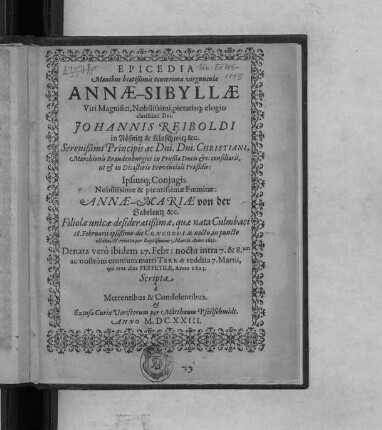 EPICEDIA
Manibus beatissimis tenerrimæ virgunculæ
ANNÆ-SIBYLLÆ
Viri Magnifici, Nobilissimi, pietatisq; elogio
clarissimi Dn.
JOHANNIS REIBOLDI
in Rößnitz & Kloschwitz &c.
Serenissimi Principis ac Dni. Dni. CHRISTIANI,
Marchionis Brandenburgici in Prussia Ducis &c. consiliarii,
ut & in Dicasterio Provinciali Præsidis:
Ipsiusq; Conjugis
Nobilissimæ & pientissimæ Fœminæ:
ANNÆ-MARIÆ von der
Gabelentz &c.
Filiolæ unicæ desideratissimæ, quæ nata Culmbaci
16. Februarii ipsissimo die CONCORDIÆ noctu, in puncto
Martii. Anno 1622.
Denata verò ibidem 27. Febr: noctu intra 7. & 8.
ac nostrûm omnium matri TERRÆ reddita 7. Martii,
qui erat dies PERPETUÆ, Anno 1623.
Scripta
à
Mœrentibus & Condolentibus.
&
Excusa Curiæ Variscorum per Matthæum Pfeilschmidt.
ANNO M.DC.XXIII.